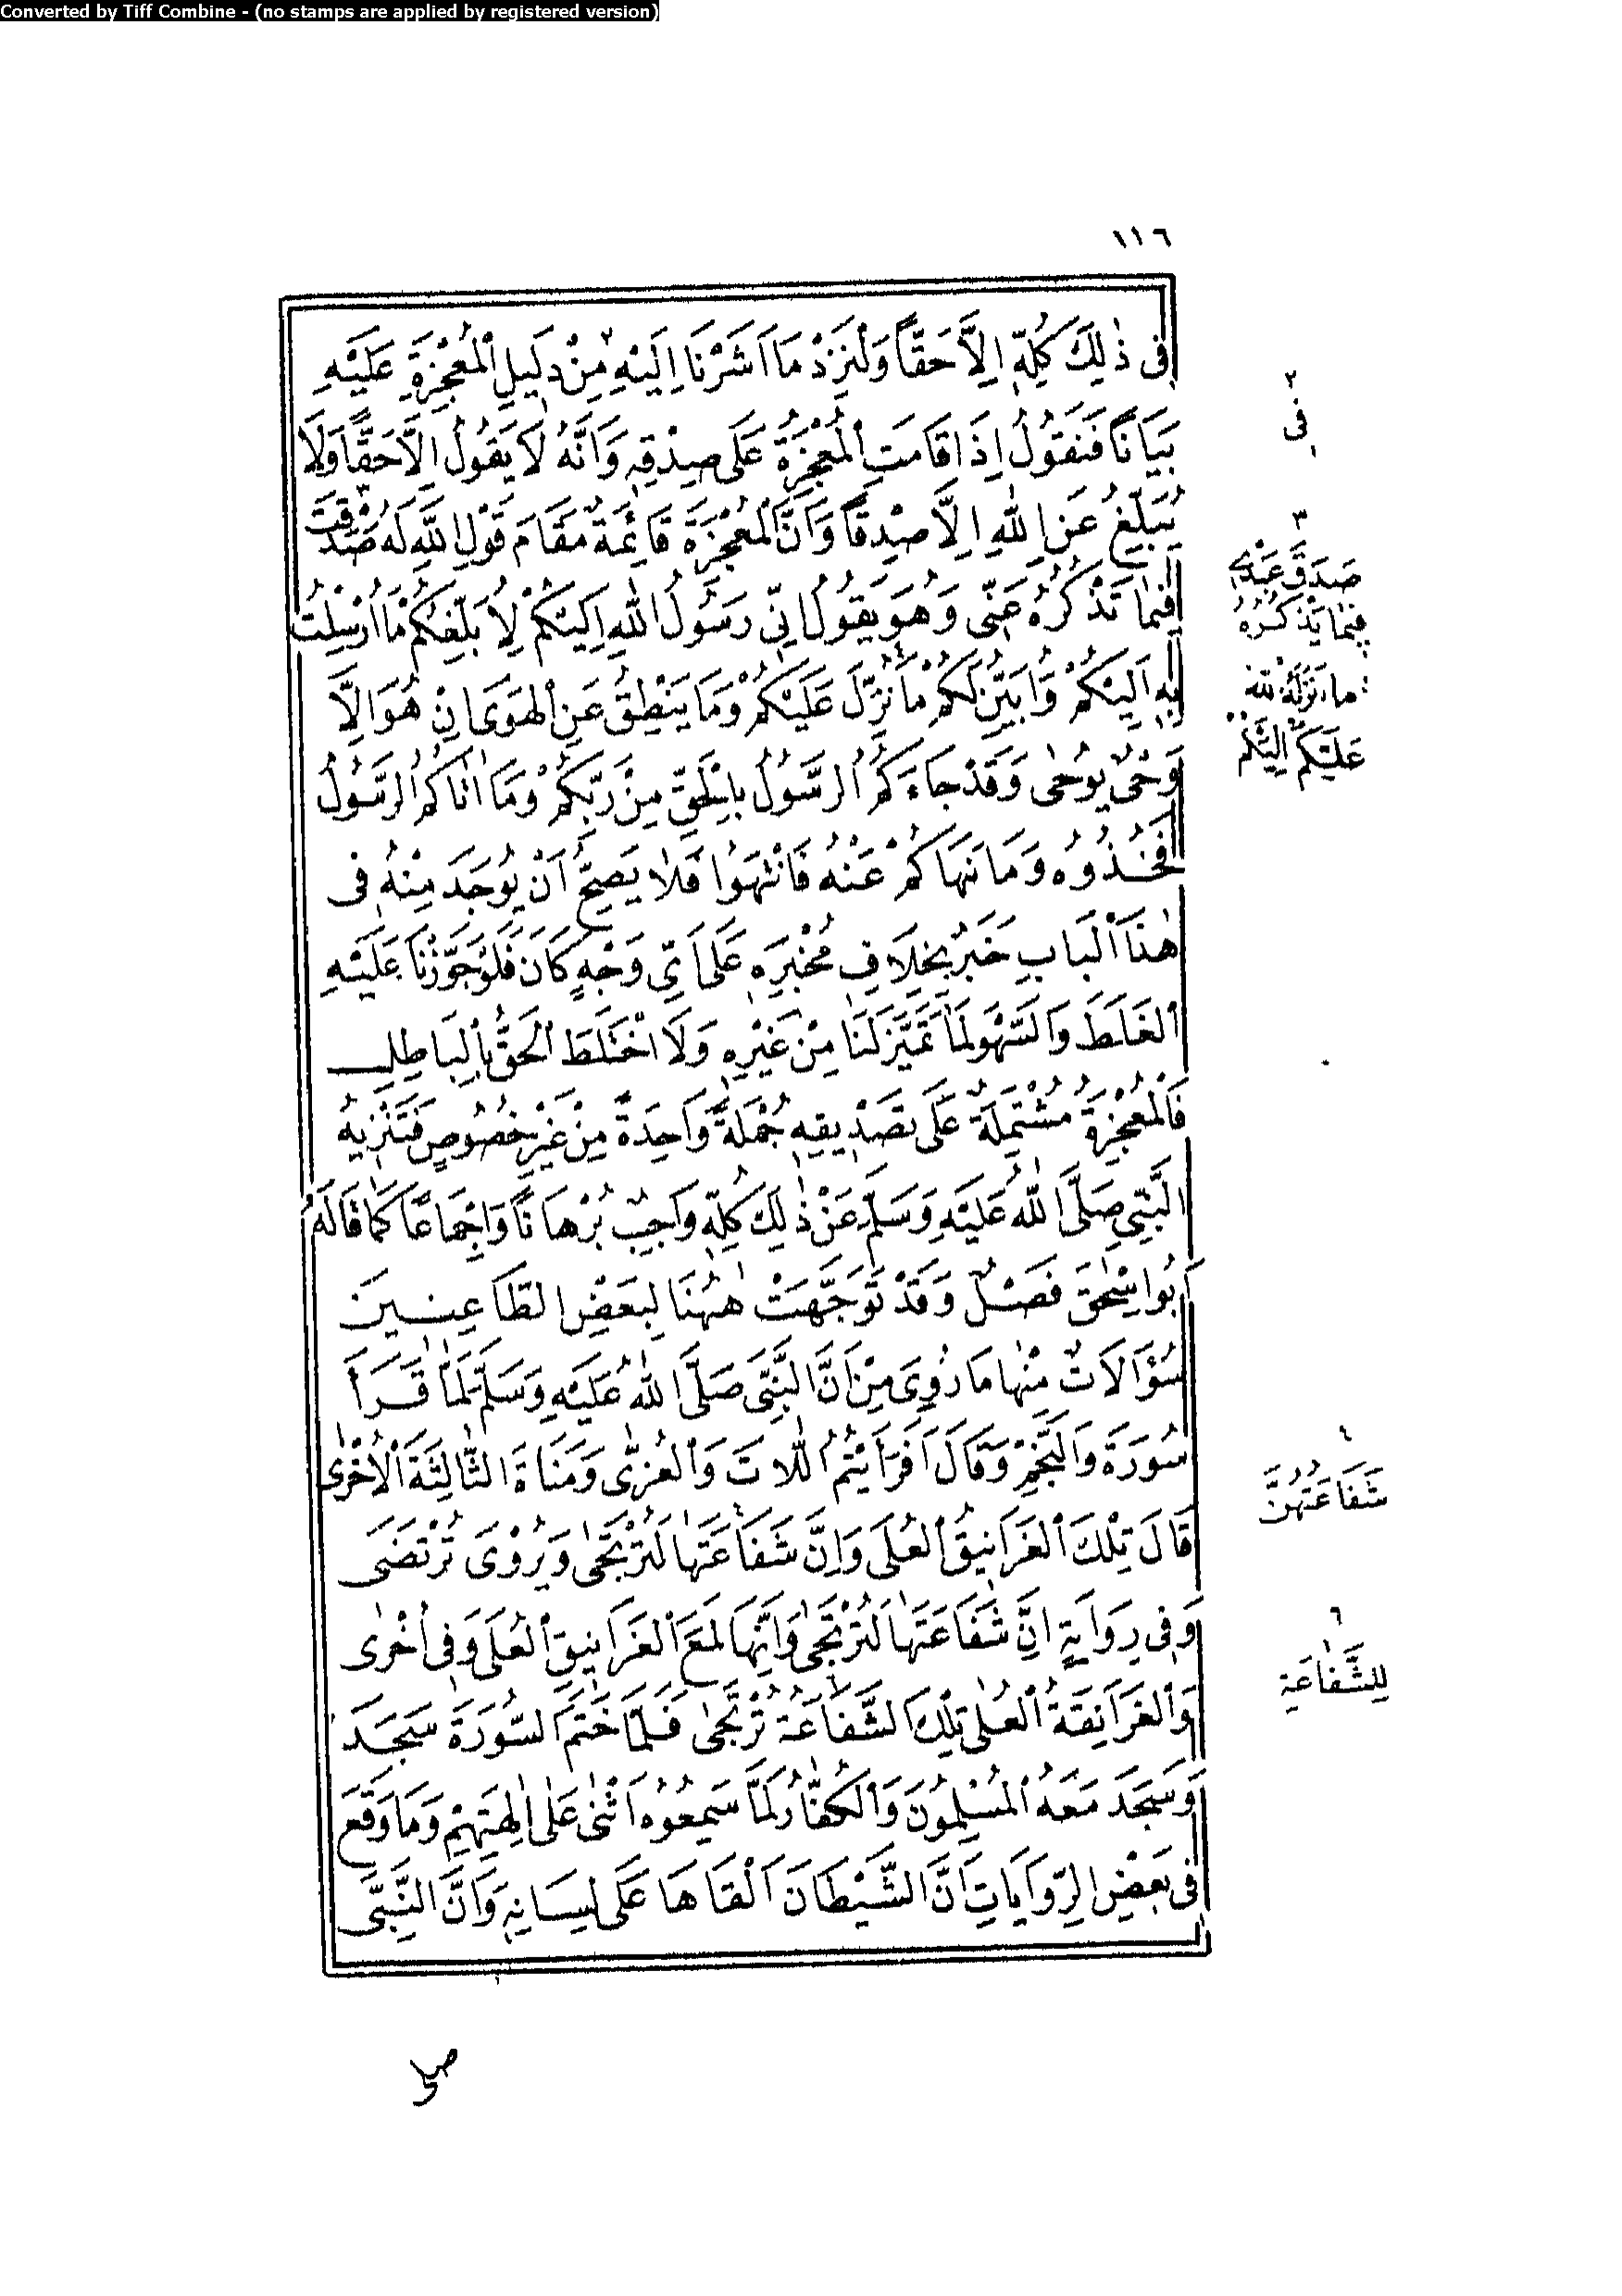 Converted by Tiff Combine - (no stamps are applied by registered version)
١١٦
فِى ذٰلِكَ كُلِّهِ اِلَّا حَقًّا وَلْنَزِدْ مَا اَشَرْنَا اِلَيْهِ ٢ مِنْ دَلِيلِ الْمُعْجِزَةِ عَلَيْهِ
بَيَانًا فَنَقُولُ اِذَا قَامَتِ الْمُعْجِزَةُ عَلَى صِدْقِهِ وَاَنَّهُ لَا يَقُولُ اِلَّا حَقًّا وَلَا
يُبَلِّغُ عَنِ اللّٰهِ اِلَّا صِدْقًا وَاَنَّ الْمُعْجِزَةَ قَائِمَةٌ مَقَامَ قَوْلِ اللّٰهِ لَهُ صَدَقْتَ ٣
فِيمَا تَذْكُرُهُ عَنِّى وَهُوَ يَقُولُ اِنِّى رَسُولُ اللّٰهِ اِلَيْكُمْ لِاُبَلِّغَكُمْ مَا اُرْسِلْتُ
بِهِ اِلَيْكُمْ وَاُبَيِّنَ لَكُمْ مَا نُزِّلَ عَلَيْكُمْ وَمَا يَنْطِقُ عَنِ الْهَوَى اِنْ هُوَ اِلَّا
وَحْىٌ يُوحٰى وَقَدْ جَاءَكُمُ الرَّسُولُ بِالْحَقِّ مِنْ رَبِّكُمْ وَمَا اٰتَاكُمُ الرَّسُولُ
فَخُذُوهُ وَمَا نَهَاكُمْ عَنْهُ فَانْتَهُوا فَلَا يَصِحُّ اَنْ يُوجَدَ مِنْهُ فِى
هٰذَا الْبَابِ خَبَرٌ بِخِلَافِ مُخْبِرِهِ عَلَى اَىِّ وَجْهٍ كَانَ فَلَوْ جَوَّزْنَا عَلَيْهِ
الْغَلَطَ وَالسَّهْوَ لَمَا تَمَيَّزَ لَنَا مِنْ غَيْرِهِ وَلَا اخْتَلَطَ الْحَقُّ بِالْبَاطِلِ
فَالْمُعْجِزَةُ مُشْتَمِلَةٌ عَلَى تَصْدِيقِهِ جُمْلَةً وَاحِدَةً مِنْ غَيْرِ خُصُوصٍ فَتَنْزِيهُ
النَّبِىِّ صَلَّى اللّٰهُ عَلَيْهِ وَسَلَّمَ عَنْ ذٰلِكَ كُلِّهِ وَاجِبٌ بُرْهَانًا وَاِجْمَاعًا كَمَا قَالَهُ
اَبُو اِسْحٰقَ فَصْلٌ وَقَدْ تَوَجَّهَتْ هٰهُنَا لِبَعْضِ الطَّاعِنِينَ
سُؤَالَاتٌ مِنْهَا مَا رُوِىَ مِنْ اَنَّ النَّبِىَّ صَلَّى اللّٰهُ عَلَيْهِ وَسَلَّمَ لَمَّا قَرَأَ
سُورَةَ وَالنَّجْمِ وَقَالَ اَفَرَاَيْتُمُ اللَّاتَ وَالْعُزّٰى وَمَنَاةَ الثَّالِثَةَ الْاُخْرٰى
قَالَ تِلْكَ الْغَرَانِيقُ الْعُلَى وَاِنَّ شَفَاعَتَهَا ٤ لَتُرْتَجٰى وَيُرْوَى تُرْتَضَى
وَفِى رِوَايَةٍ اِنَّ شَفَاعَتَهَا لَتُرْتَجٰى وَاِنَّهَا لَمَعَ الْغَرَانِيقِ الْعُلَى وَفِى اُخْرٰى
وَالْغَرَانِقَةُ الْعُلٰى تِلْكَ الشَّفَاعَةُ ٦ تُرْتَجٰى فَلَمَّا خَتَمَ السُّورَةَ سَجَدَ
وَسَجَدَ مَعَهُ الْمُسْلِمُونَ وَالْكُفَّارُ لَمَّا سَمِعُوهُ اَثْنٰى عَلٰى اٰلِهَتِهِمْ وَمَا وَقَعَ
فِى بَعْضِ الرِّوَايَاتِ اَنَّ الشَّيْطَانَ اَلْقَاهَا عَلَى لِسَانِهِ وَاَنَّ النَّبِىَّ
٢
فِى
٣
صَدَقَ عَبْدِى
فِيمَا يَذْكُرُهُ
مَا نَزَّلَهُ اللّٰه
عَلَيْكُمْ اِلَيْكُمْ
٤
شَفَاعَتُهُنَّ
٦
لِلشَّفَاعَةِ
صلى